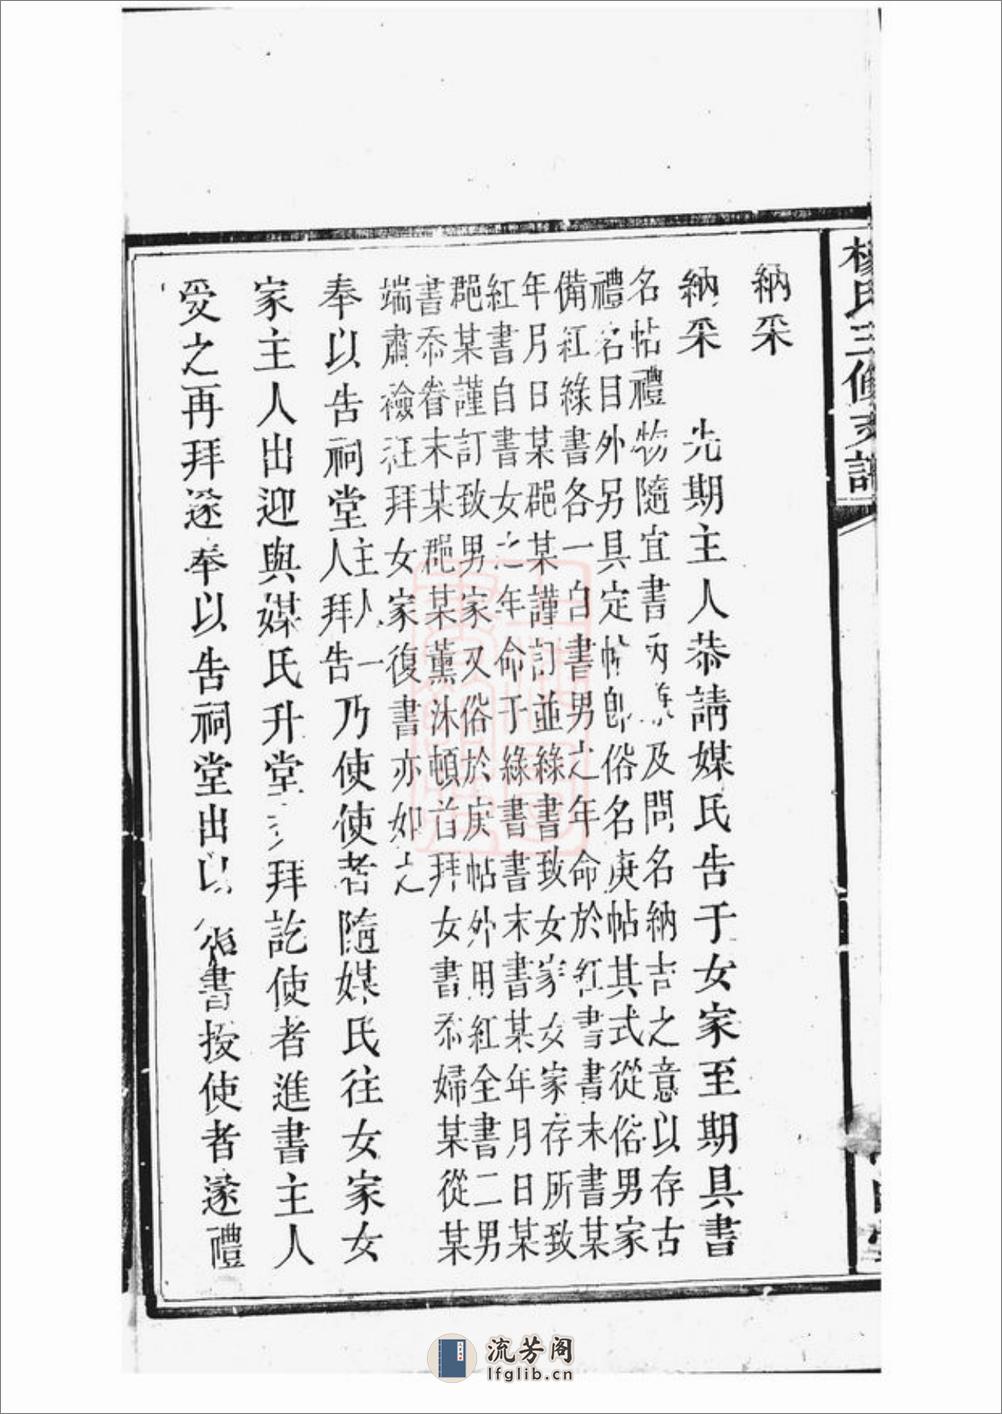 楊氏三修支譜
納采
納采　先期主人恭請媒氏告于女家至期具書
名帖禮物隨宜書內兼及問名納吉之意以存古
禮名目外另具定帖即俗名庚帖其式從俗男家
備紅綠書各一自書男之年命於紅書書末書某
年月日某郡某謹訂並綠書致女家女家存所致
紅書自書女之年命于綠書書末書某年月日某
郡某謹訂致男家又俗於庚帖外用紅全書二男
書忝眷末某郡某薰沐頓首拜女書忝婦某從某
端肅襝衽拜女家復書亦如之
奉以告祠堂主人一人拜告乃使使者隨媒氏往女家女
家主人出迎與媒氏升堂交拜訖使者進書主人
受之再拜遂奉以告祠堂出以復書授使者遂禮
流芳阁
lfglib.cn